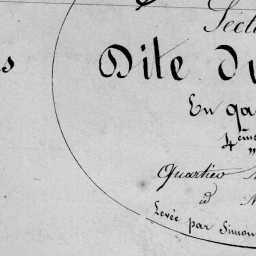 Secti
s Dite du
En qua
4ème
"
Quartier
id
Levée par Simon